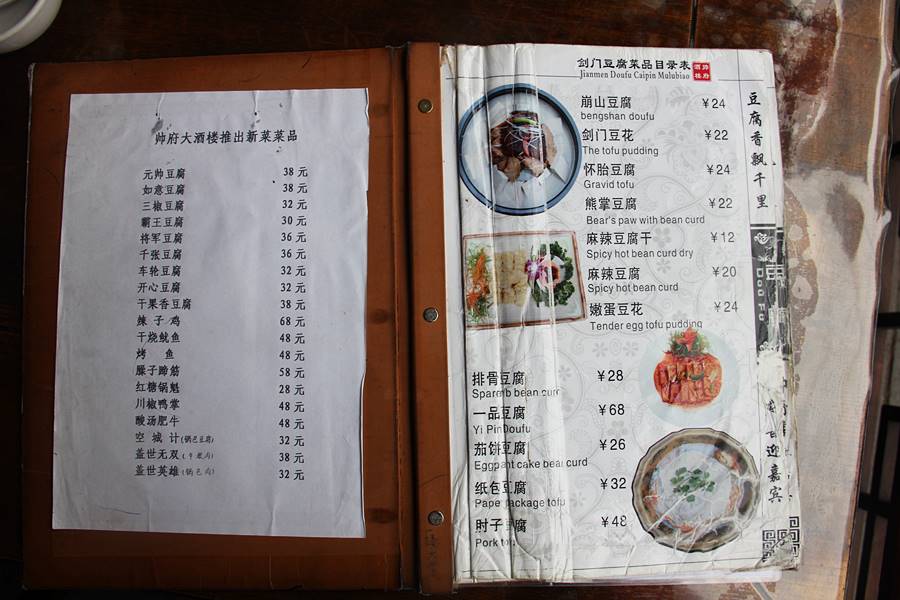 帅府大酒楼推出新菜菜品
元帅豆腐 38 元
如意豆腐 38 元
三椒豆腐 32 元
霸王豆腐 30 元
将军豆腐 36 元
千张豆腐 36 元
车轮豆腐 32 元
开心豆腐 32 元
干果香豆腐 38 元
辣子鸡 68 元
干烧鱿鱼 48 元
烤 鱼 48 元
臊子蹄筋 58 元
红糖锅魁 28 元
川椒鸭掌 48 元
酸汤肥牛 48 元
空城计(锅巴豆腐) 32 元
盖世无双 38 元
盖世英雄(锅巴肉) 32 元
剑门豆腐菜品目录表
Jianmen Doufu Caipin Mulubiao
帅府酒楼
崩山豆腐 ¥24
bengshan doufu
剑门豆花 ¥22
The tofu pudding
怀胎豆腐 ¥24
Gravid tofu
熊掌豆腐 ¥22
Bear's paw with bean curd
麻辣豆腐干 ¥12
Spicy hot bean curd dry
麻辣豆腐 ¥20
Spicy hot bean curd
嫩蛋豆花 ¥24
Tender egg tofu pudding
排骨豆腐 ¥28
Sparerib bean curd
一品豆腐 ¥68
Yi PinDoufu
茄饼豆腐 ¥26
Eggpant cake bean curd
纸包豆腐 ¥32
Paper package tofu
肘子豆腐 ¥48
Pork tofu
豆腐香飘千里
Dou Fu
迎嘉宾